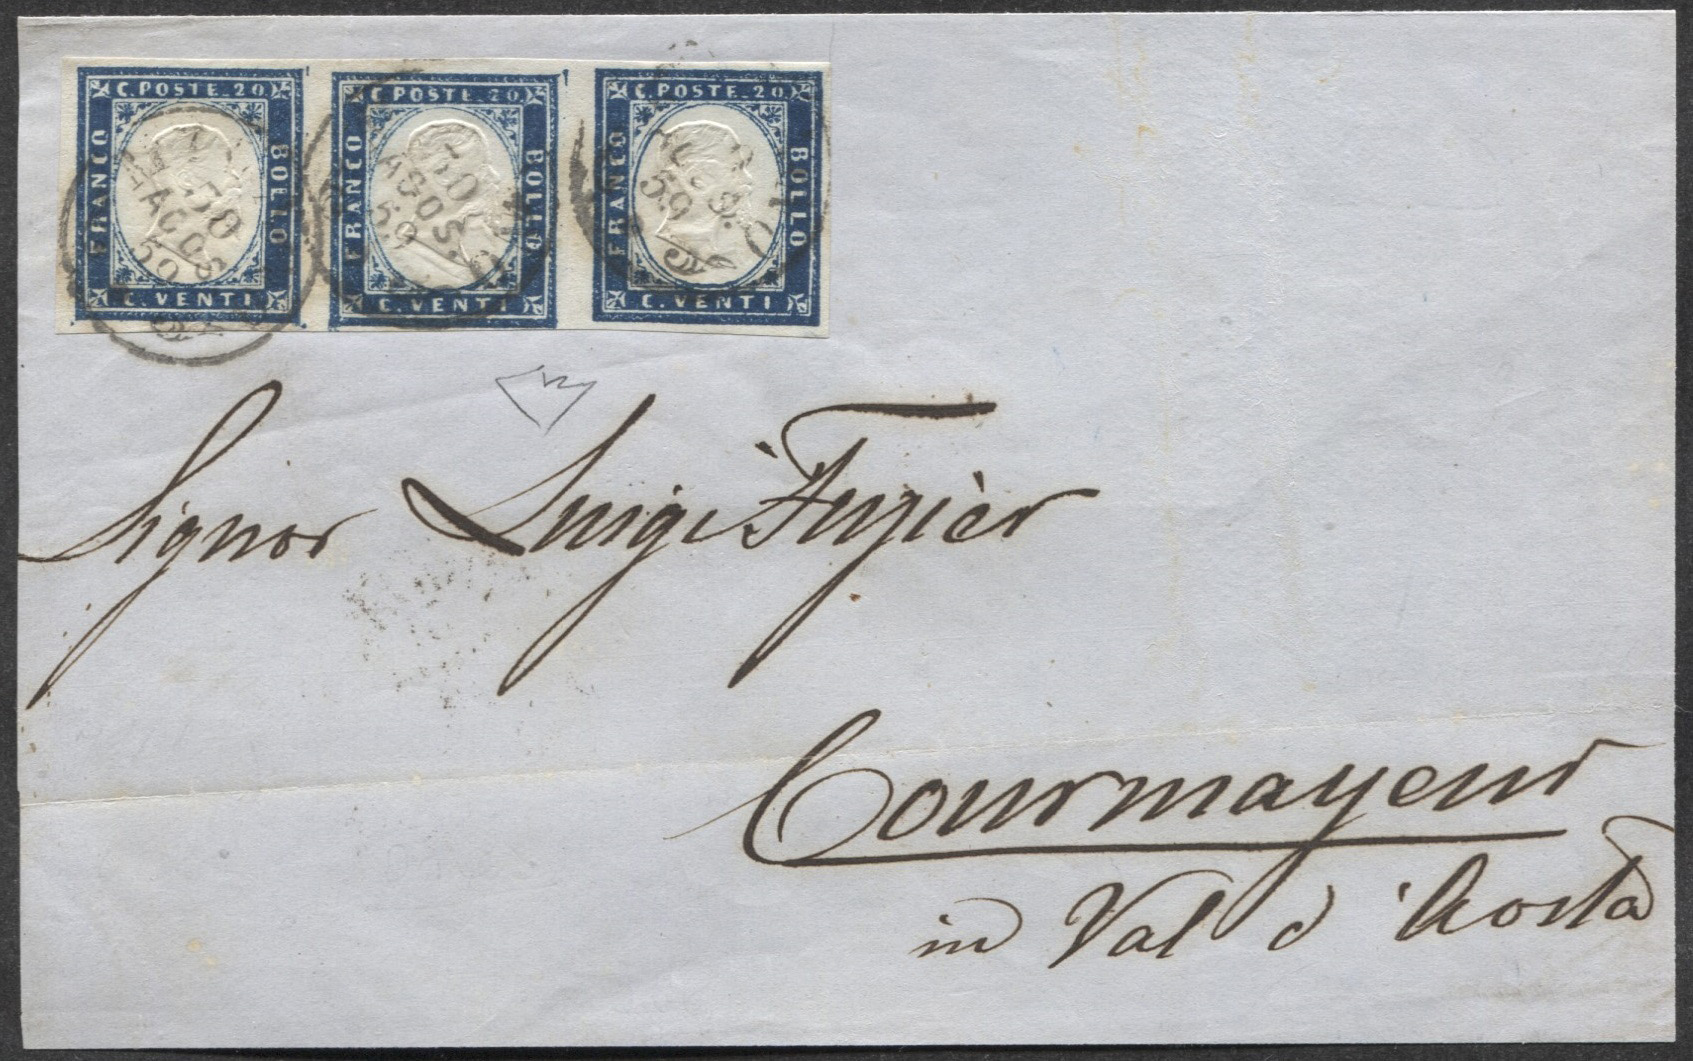 C. POSTE. 20 C. POSTE. 20. C. POSTE. 20.
FRANCO BOLLO FRANCO BOLLO FRANCO BOLLO
30 30
AGOS AGOS
59 59 59
C. VENTI C. VENTI C. VENTI
Signor Luigi Fuzièr
Courmayeur
in Val d'Aosta